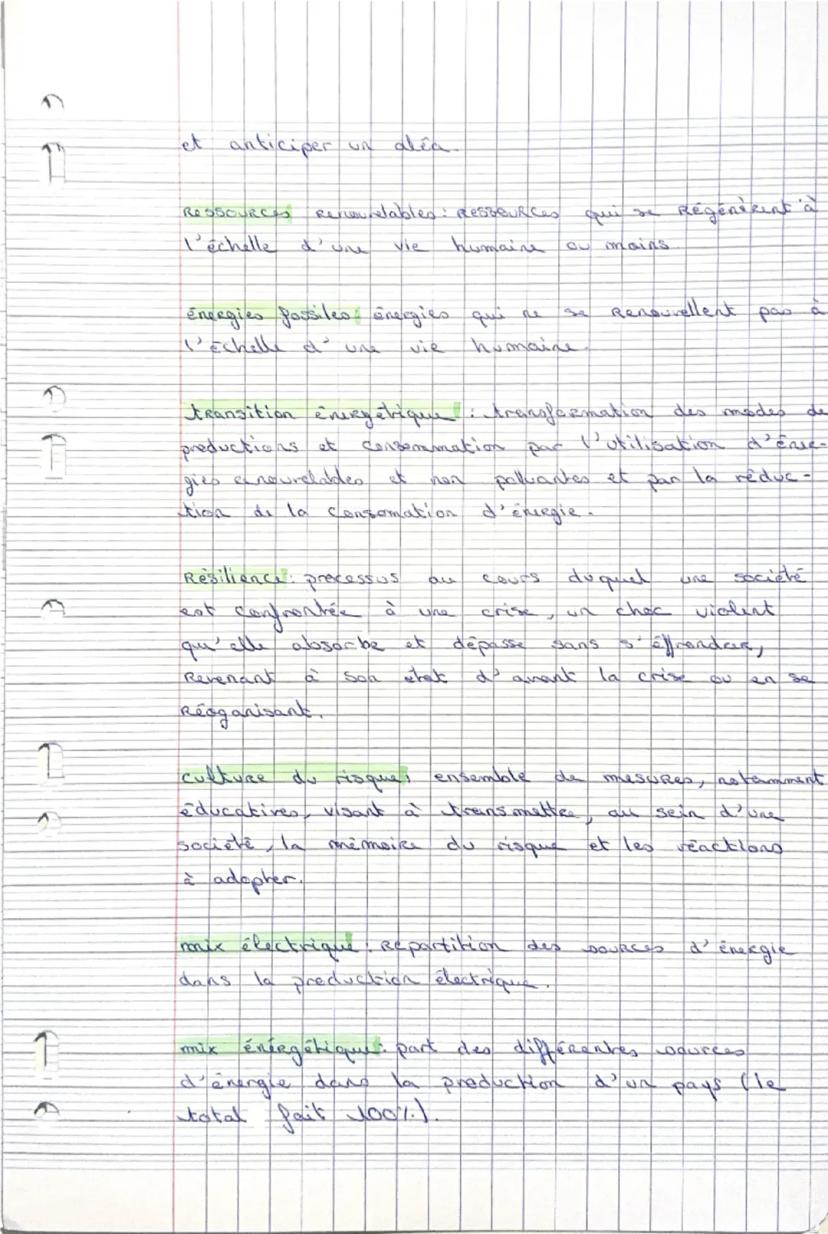 et anticiper un aléa.
Ressources renouvelables : ressources qui se régénèrent à
l'échelle d'une vie humaine ou moins
énergies fossiles : énergies qui ne se renouvellent pas à
l'échelle d'une vie humaine.
transition énergétique : transformation des modes de
productions et consommation par l'utilisation d'éner-
gies enouvelables et non polluantes et par la réduc-
tion de la consomation d'énergie.
Résilience : processus au cours duquel une société
est confrontée à une crise, un choc violent
qu'elle absorbe et dépasse sans s'éffondrer,
revenant à son état d'avant la crise ou en se
réoganisant.
culture du risque : ensemble de mesures, notamment
éducatives, visant à transmettre, au sein d'une
société, la mémoire du risque et les réactions
à adopter.
mix électrique : répartition des sources d'énergie
dans la production électrique.
mix énérgétique : part des différentes sources
d'énergie dans la production d'un pays (le
total fait 100%).